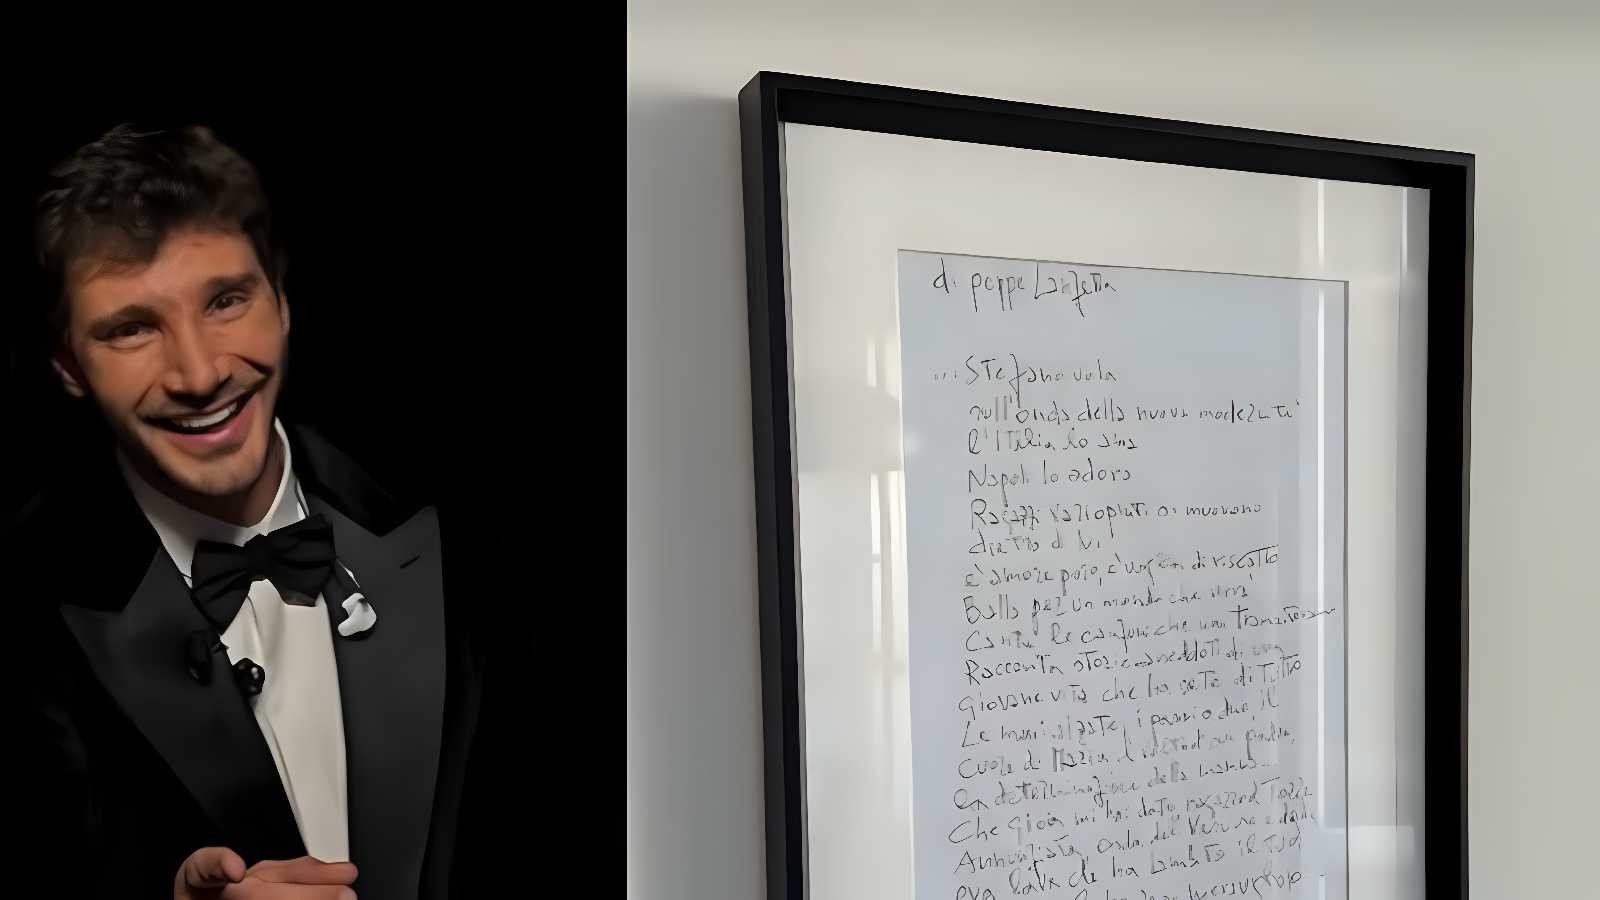 di peppe Lanzetta
...Stefano vola
sull'onda della nuova modernità
l'Italia lo ama
Napoli lo adora
Ragazzi variopinti si muovono
dietro di lui
è amore puro, è voglia di riscatto
Balla per un mondo che verrà
Canta le canzoni che non tramontano
Racconta storie aneddoti di una
Giovane vita che ha sete di tutto
Le mani alzate, i passi a due, il
Cuore di Maria, il
la determinazione della mamma...
Che gioia mi hai dato ragazzo di Torre
Annunziata, del Vesuvio e della
sua lava che ha lambito il tuo